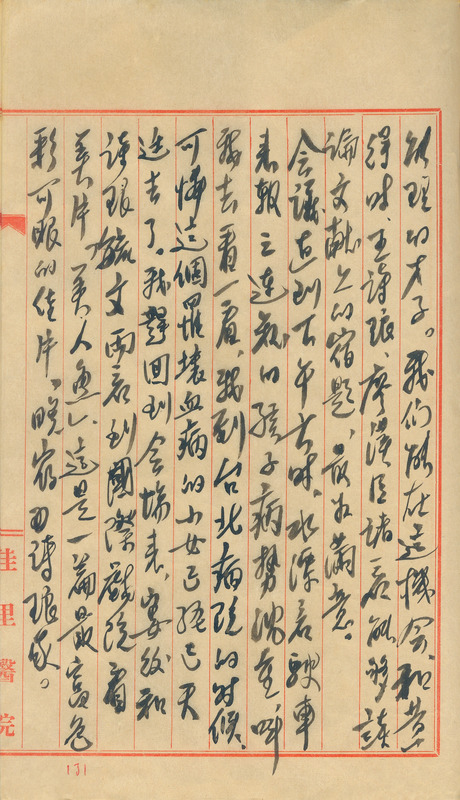 欲理的才子。我們能在這機會、和黃
得時、王詩琅、廖漢臣諸君能夠談
論文獻上的宿題、最為滿意。
會議直到下午七時、水潭君駛車
來報三連兄的孩子病勢沈重叫
我去看一看、我到台北病院的時候、
可憐這個罹壞血病的少女已經已天
逝去了。我趕回到會場來、宴後和
詩琅、毓文兩君到國際戲院看
美片美人魚、這是一篇最富色
彩可眼的佳片、晚宿在詩琅家。
佳里醫院